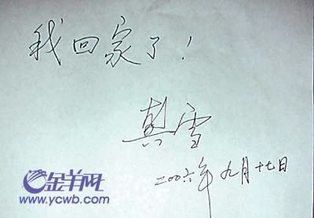 我回家了!
真雪
二〇〇六年九月十七日
金羊网
www.ycwb.com